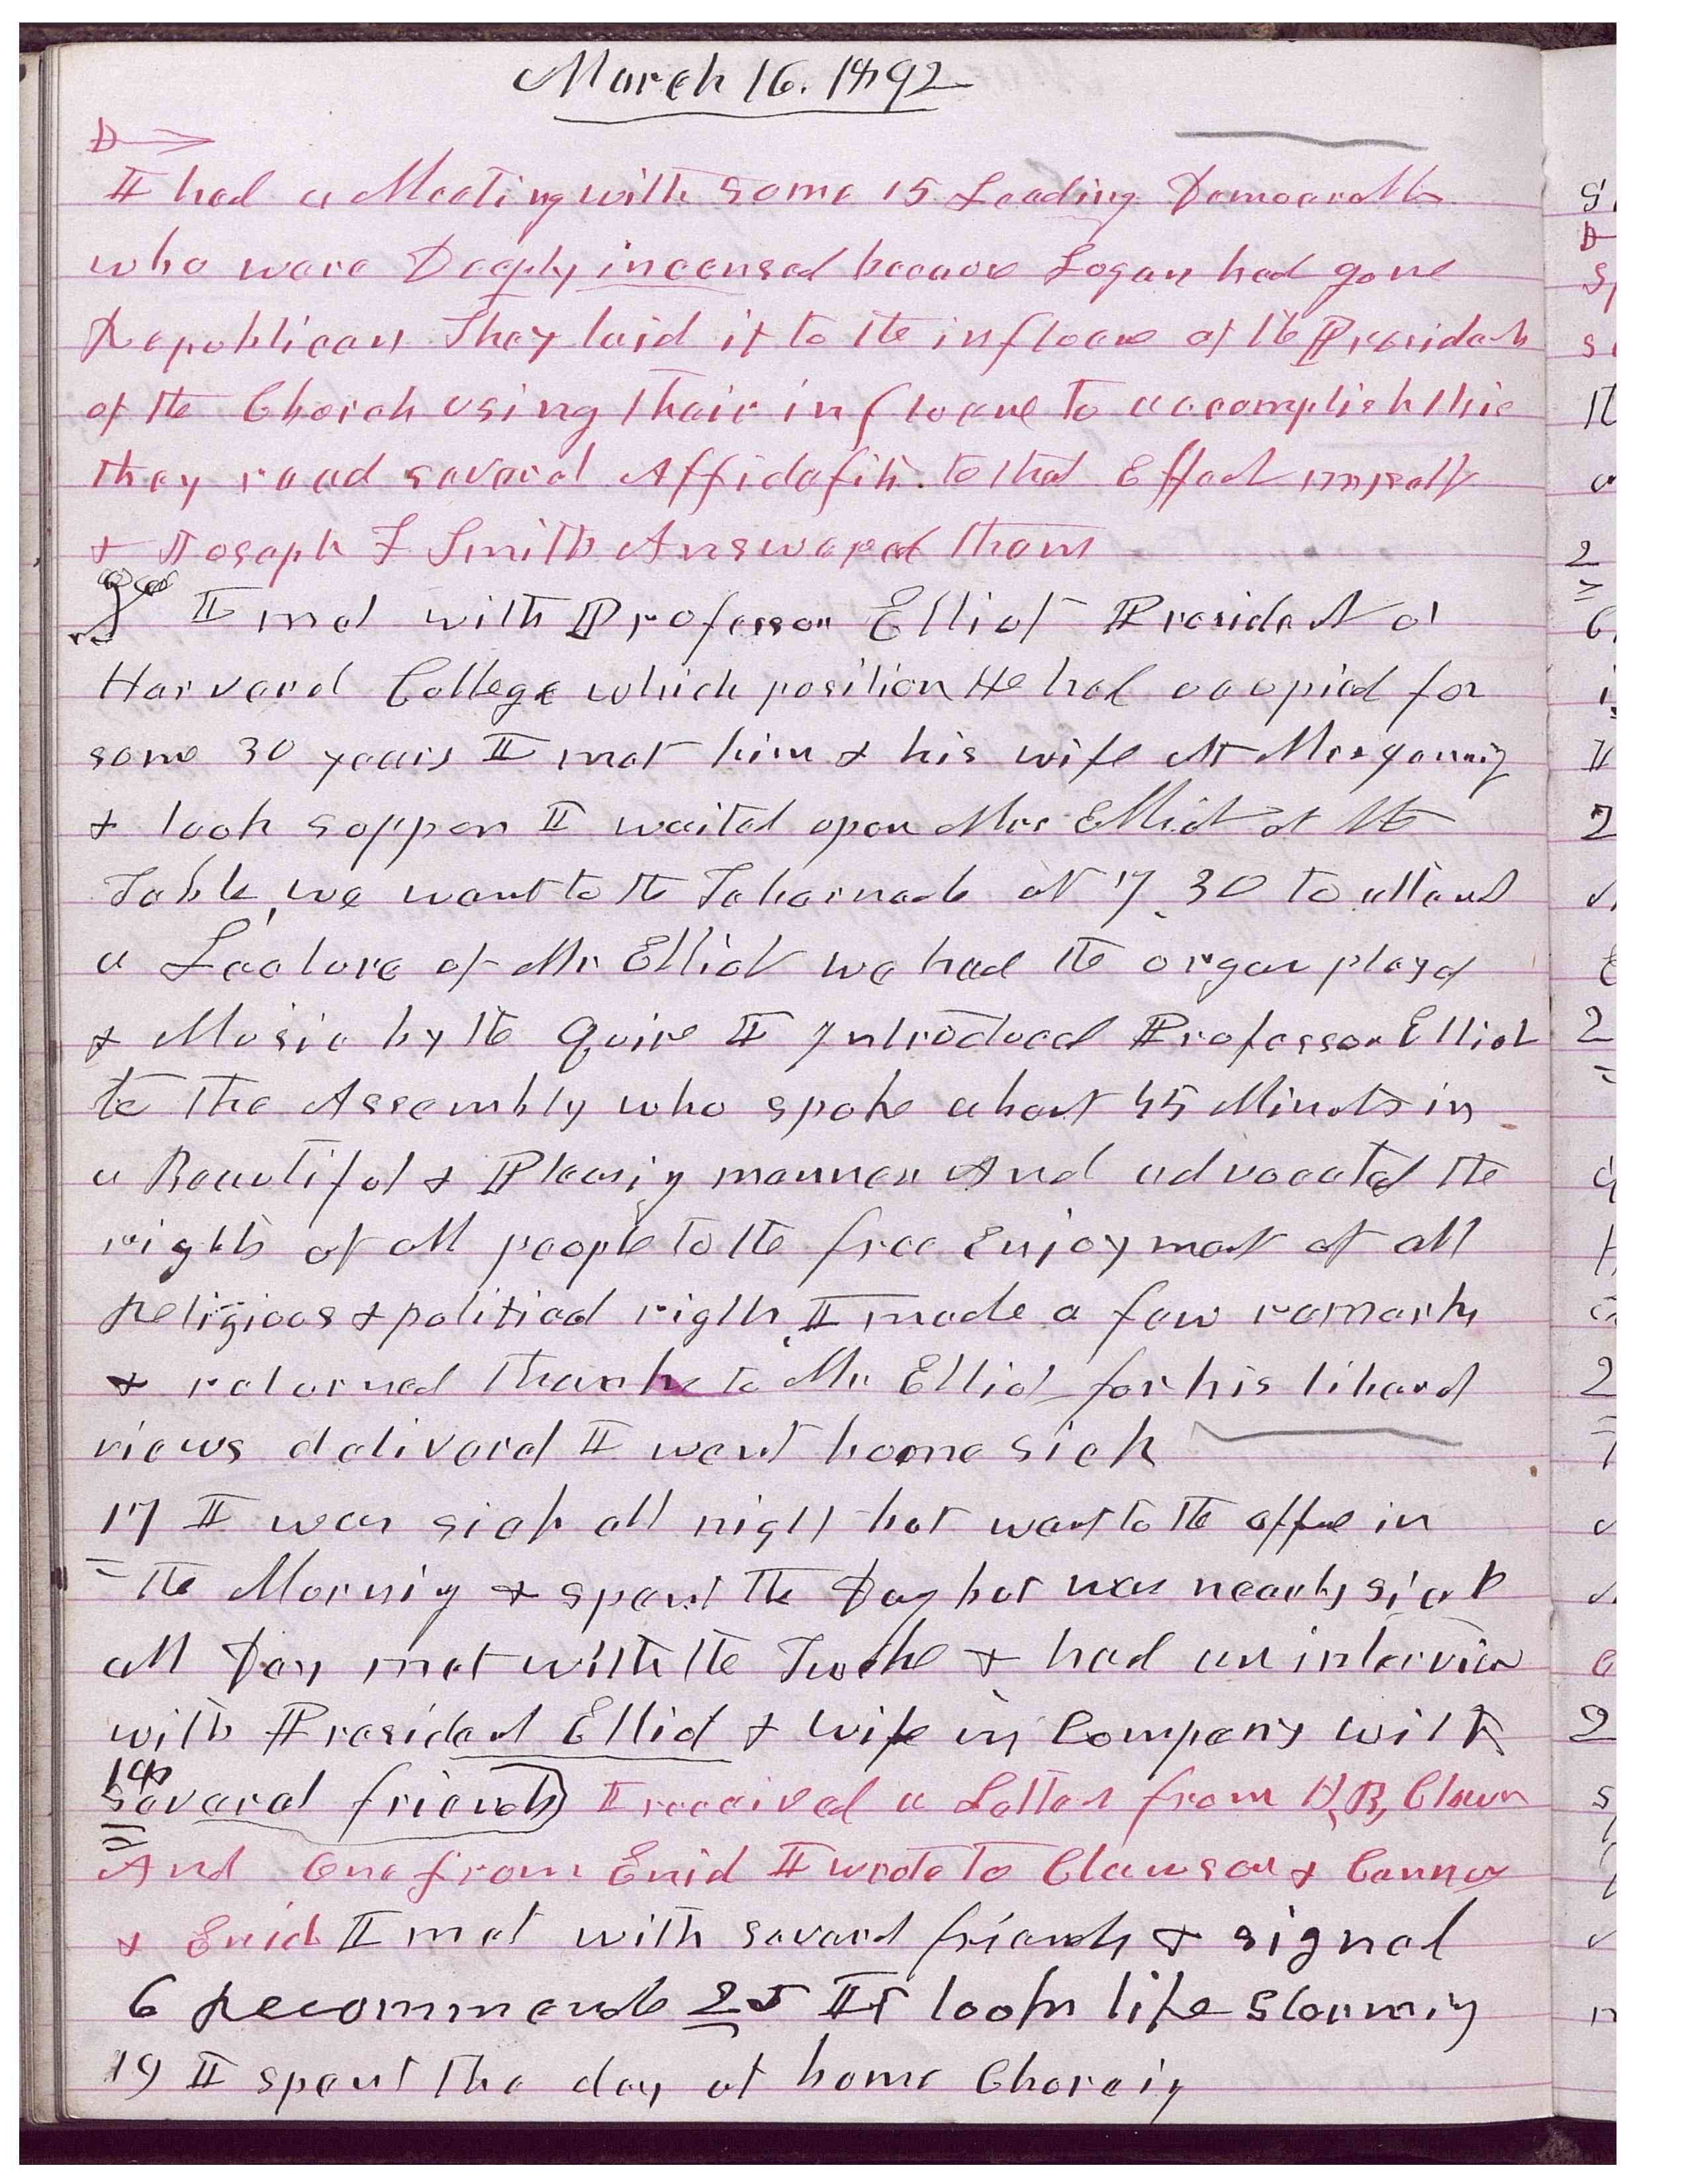 March 16. 1892
D
I had a Meeting with some 15 Leading Democrats
who were Deeply incensed because Logan had gone
Republican They laid it to the influence of the Presidents
of the Church using their influence to accomplish this
they read several Affidafits to that Effect myself
& Joseph F Smith Answered them
I met with Professor Elliot President of
Harvard College which position He had occupied for
some 30 years I met him & his wife At Mrs Young
& took supper I waited upon Mrs Elliot at the
Table, we went to the Tabernacle at 7.30 to attend
a Lecture of Mr Elliot we had the organ playd
& Music by the Quire I Introduced Professor Elliot
to the Assembly who spoke about 45 Minuts in
a Beautiful & Pleasing manner And advocated the
rights of all people to the free Enjoyment of all
Religious & political rights, I made a few remarks
& returned thanks to Mr Elliot for his liberal
views deliverd I went home sick
17 I was sick all night but went to the office in
the Morning & spent the Day but was nearly sick
all Day met with the Twelve & had an interview
with President Elliot & wife in Company with
several friends
18 I received a Letter from H, B, Clawson
And One from Enid I wrote to Clawson & Cannon
& Enid I met with several friends & signed
6 Recommends 25 It looks like Storming
19 I spent the day at home Choreing